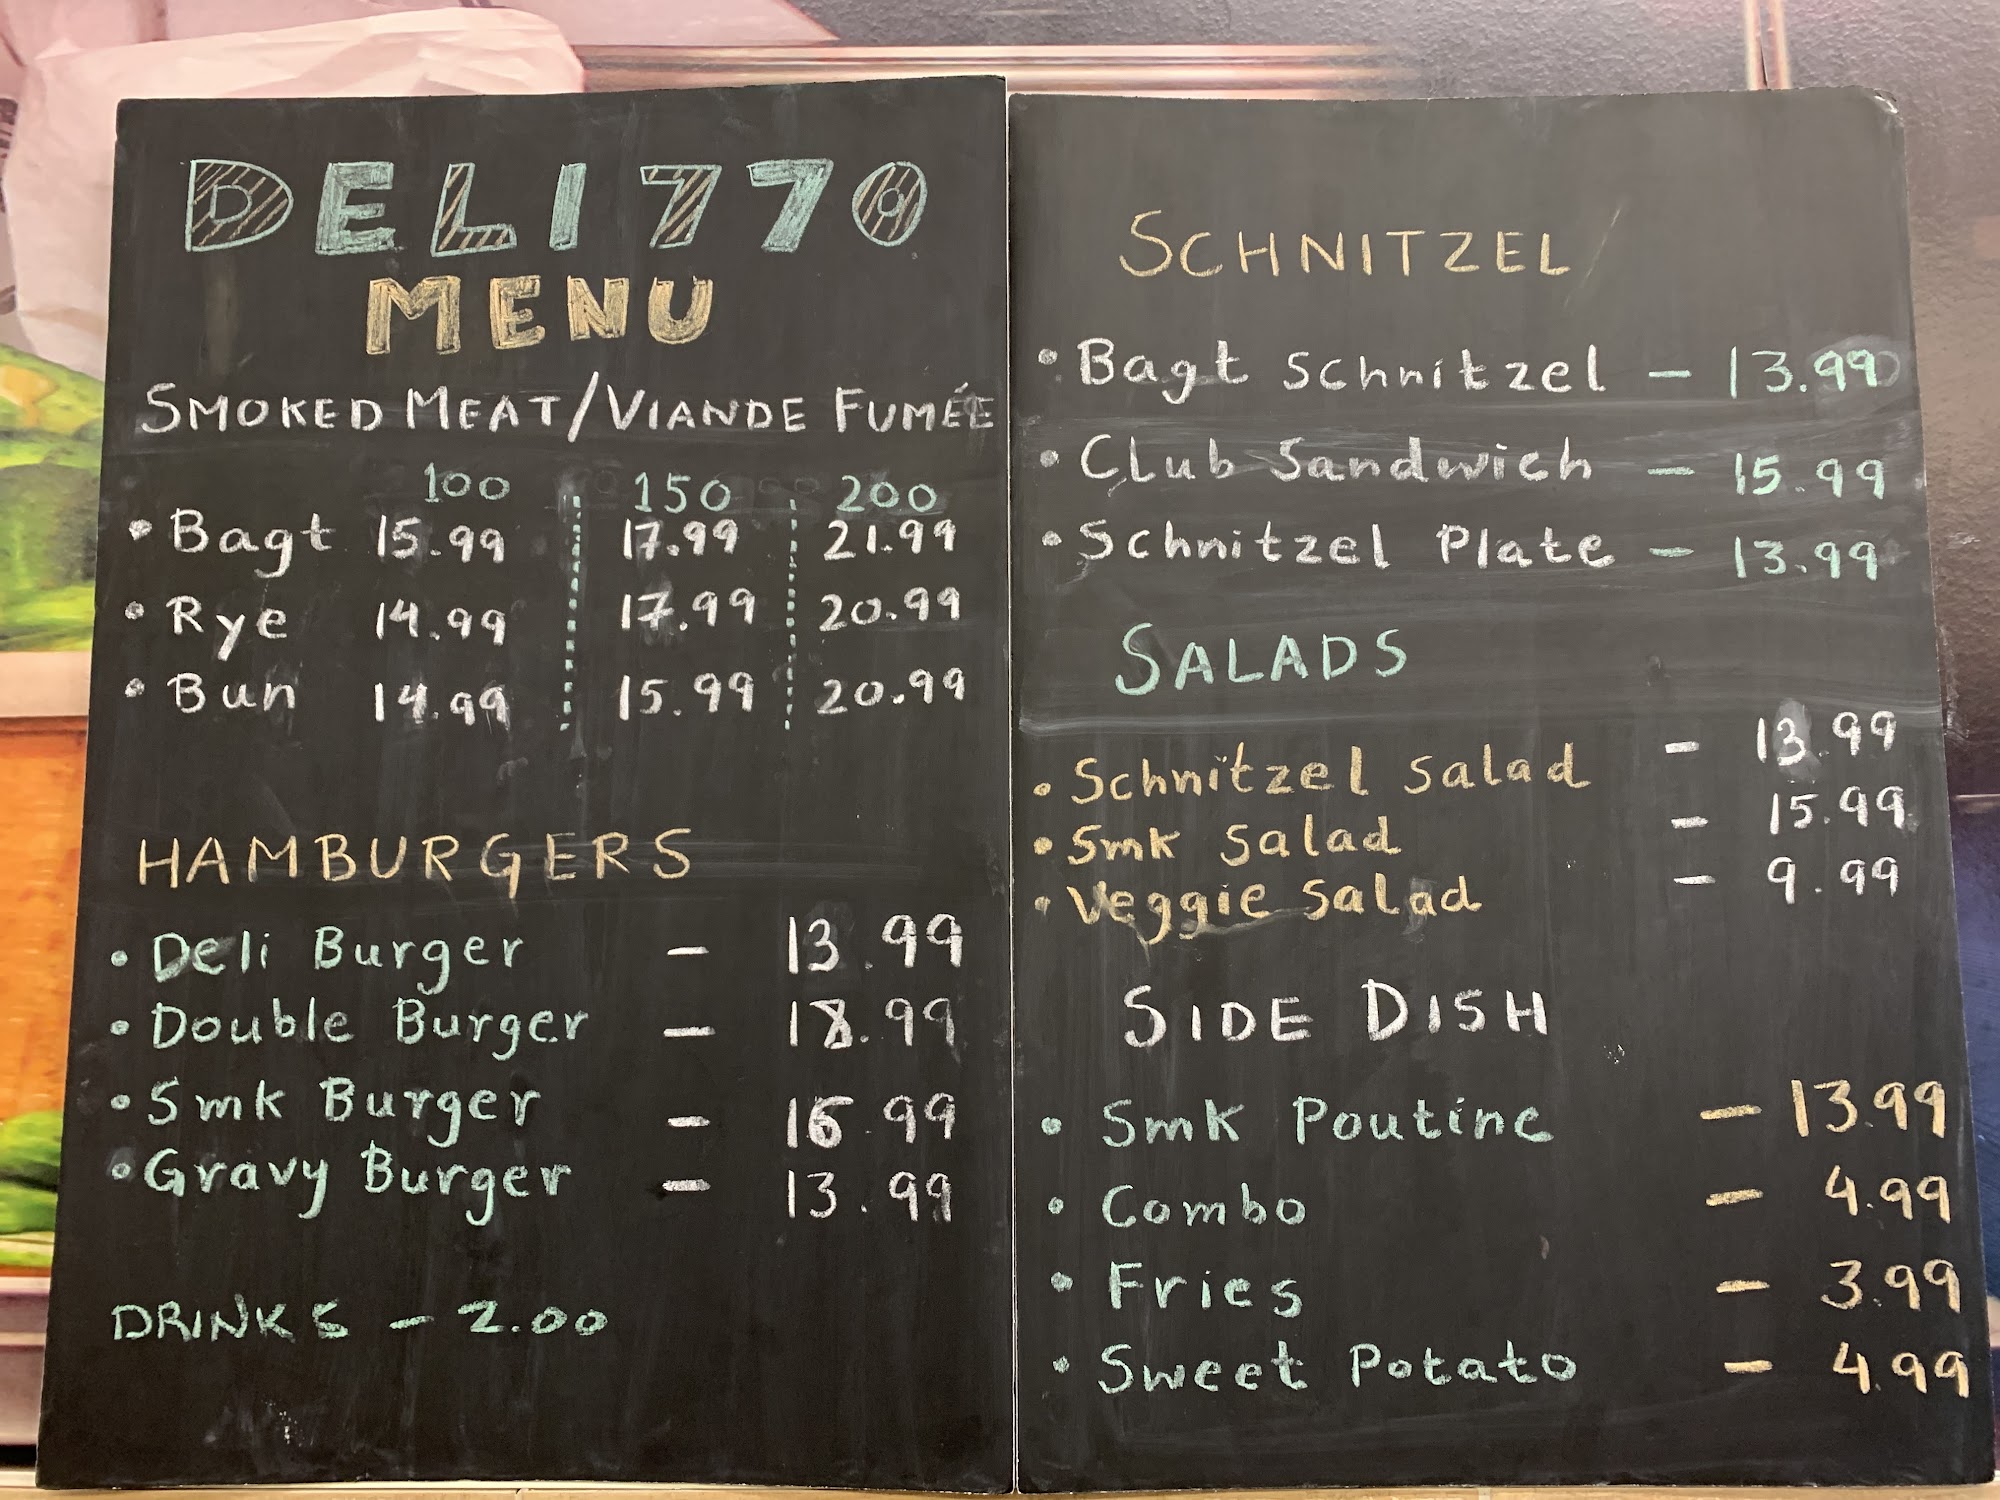 DELI 770
MENU
SMOKED MEAT/VIANDE FUMÉE
100 150 200
• Bagt 15.99 17.99 21.99
• Rye 14.99 17.99 20.99
• Bun 14.99 15.99 20.99
HAMBURGERS
• Deli Burger – 13.99
• Double Burger – 18.99
• Smk Burger – 16.99
• Gravy Burger – 13.99
DRINKS – 2.00
SCHNITZEL
• Bagt Schnitzel – 13.99
• Club Sandwich – 15.99
• Schnitzel Plate – 13.99
SALADS
• Schnitzel Salad – 13.99
• Smk Salad – 15.99
• Veggie Salad – 9.99
SIDE DISH
• Smk Poutine – 13.99
• Combo – 4.99
• Fries – 3.99
• Sweet Potato – 4.99